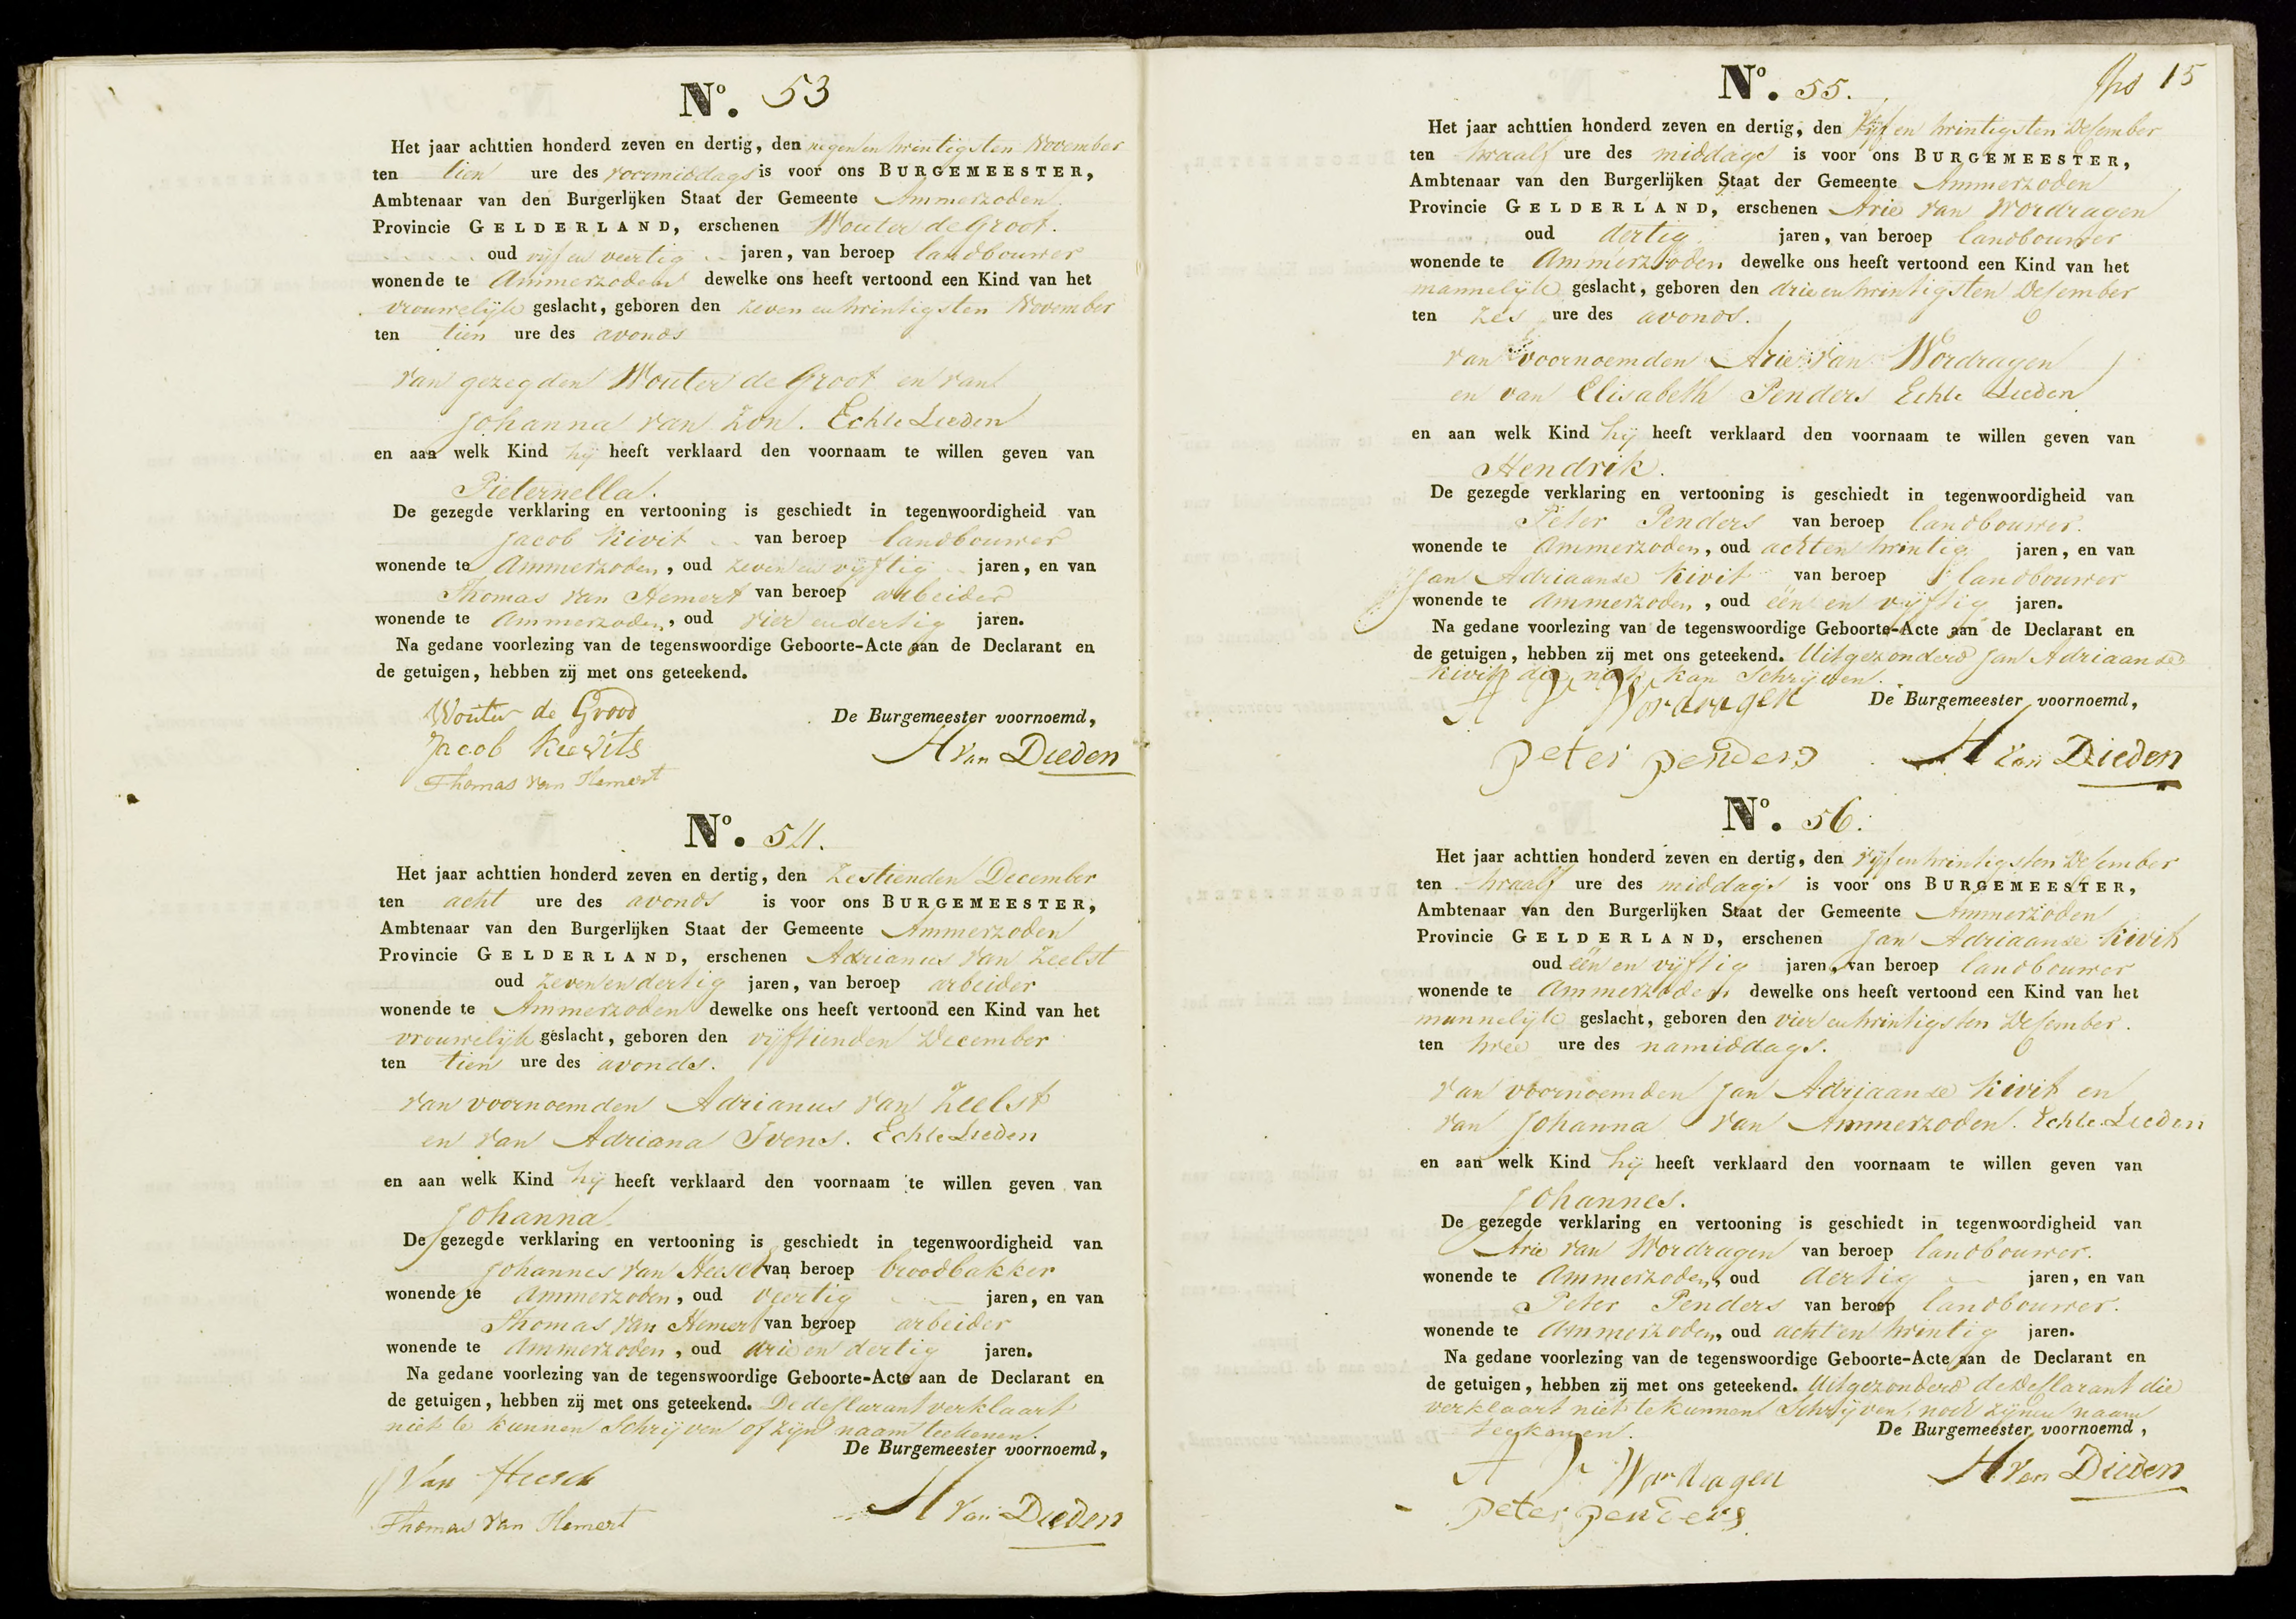 No. 53
Het jaar achttien honderd zeven en dertig, den negen en twintigsten November
ten tien ure des voormiddags is voor ons BURGEMEESTER,
Ambtenaar van den Burgerlijken Staat der Gemeente Ammerzoden
Provincie GELDERLAND, erschenen Wouter de Groot.
oud vijf en veertig jaren, van beroep landbouwer
wonende te Ammerzoden dewelke ons heeft vertoond een Kind van het
vrouwelijk geslacht, geboren den zeven en twintigsten November
ten tien ure des avonds
van gezegden Wouter de Groot en van
Johanna van Zon. Echte Lieden
en aan welk Kind hij heeft verklaard den voornaam te willen geven van
Pieternella.
De gezegde verklaring en vertooning is geschiedt in tegenwoordigheid van
Jacob Kivit van beroep landbouwer
wonende te Ammerzoden, oud zeven en vijftig jaren, en van
Thomas van Hemert van beroep arbeider
wonende te Ammerzoden, oud vier en dertig jaren.
Na gedane voorlezing van de tegenswoordige Geboorte-Acte aan de Declarant en
de getuigen, hebben zij met ons geteekend.
Wouter de Grood
De Burgemeester voornoemd,
Jacob Kiewits
H van Dieden
Thomas van Hemert
No. 54.
Het jaar achttien honderd zeven en dertig, den Zestienden December
ten acht ure des avonds is voor ons BURGEMEESTER,
Ambtenaar van den Burgerlijken Staat der Gemeente Ammerzoden
Provincie GELDERLAND, erschenen Adrianus van Zeelst
oud zeven en dertig jaren, van beroep arbeider
wonende te Ammerzoden dewelke ons heeft vertoond een Kind van het
vrouwelijk geslacht, geboren den vijftienden December
ten tien ure des avonds.
van voornoemden Adrianus van Zeelst
en van Adriana Ivens. Echte Lieden
en aan welk Kind hij heeft verklaard den voornaam te willen geven van
Johanna.
De gezegde verklaring en vertooning is geschiedt in tegenwoordigheid van
Johannes van Heesch van beroep broodbakker
wonende te Ammerzoden, oud veertig jaren, en van
Thomas van Hemert van beroep arbeider
wonende te Ammerzoden, oud drie en dertig jaren.
Na gedane voorlezing van de tegenswoordige Geboorte-Acte aan de Declarant en
de getuigen, hebben zij met ons geteekend. De declarant verklaart
niet te kunnen Schrijven of zijn naam teekenen.
De Burgemeester voornoemd,
J Van Heesch
H van Dieden
Thomas van Hemert
15
No. 55.
Het jaar achttien honderd zeven en dertig, den Vijf en twintigsten December
ten twaalf ure des middags is voor ons BURGEMEESTER,
Ambtenaar van den Burgerlijken Staat der Gemeente Ammerzoden
Provincie GELDERLAND, erschenen Arie van Wordragen
oud dertig jaren, van beroep landbouwer
wonende te Ammerzoden dewelke ons heeft vertoond een Kind van het
mannelijk geslacht, geboren den drie en twintigsten December
ten zes ure des avonds.
van voornoemden Arie van Wordragen
en van Elisabeth Penders Echte Lieden
en aan welk Kind hij heeft verklaard den voornaam te willen geven van
Hendrik.
De gezegde verklaring en vertooning is geschiedt in tegenwoordigheid van
Peter Penders van beroep landbouwer.
wonende te Ammerzoden, oud acht en twintig jaren, en van
Jan Adriaanse Kivit van beroep landbouwer
wonende te Ammerzoden, oud één en vijftig jaren.
Na gedane voorlezing van de tegenswoordige Geboorte-Acte aan de Declarant en
de getuigen, hebben zij met ons geteekend. Uitgezonderd Jan Adriaanse
Kivit die niet kan Schrijven.
De Burgemeester voornoemd,
A V Wordragen
peter penders
H van Dieden
No. 56.
Het jaar achttien honderd zeven en dertig, den vijf en twintigsten December
ten twaalf ure des middags is voor ons BURGEMEESTER,
Ambtenaar van den Burgerlijken Staat der Gemeente Ammerzoden
Provincie GELDERLAND, erschenen Jan Adriaanse Kivit
oud één en vijftig jaren, van beroep landbouwer
wonende te Ammerzoden dewelke ons heeft vertoond een Kind van het
mannelijk geslacht, geboren den vier en twintigsten December.
ten twee ure des namiddags.
van voornoemden Jan Adrijaanse Kivit en
van Johanna van Ammerzoden. Echte Lieden
en aan welk Kind hij heeft verklaard den voornaam te willen geven van
Johannes.
De gezegde verklaring en vertooning is geschiedt in tegenwoordigheid van
Arie van Wordragen van beroep landbouwer.
wonende te Ammerzoden, oud dertig jaren, en van
Peter Penders van beroep landbouwer.
wonende te Ammerzoden, oud acht en twintig jaren.
Na gedane voorlezing van de tegenswoordige Geboorte-Acte aan de Declarant en
de getuigen, hebben zij met ons geteekend. Uitgezonderd de declarant die
verklaart niet te kunnen Schrijven, noch zijnen naam
teekenen.
De Burgemeester voornoemd,
A V Wordragen
H van Dieden
peter penders